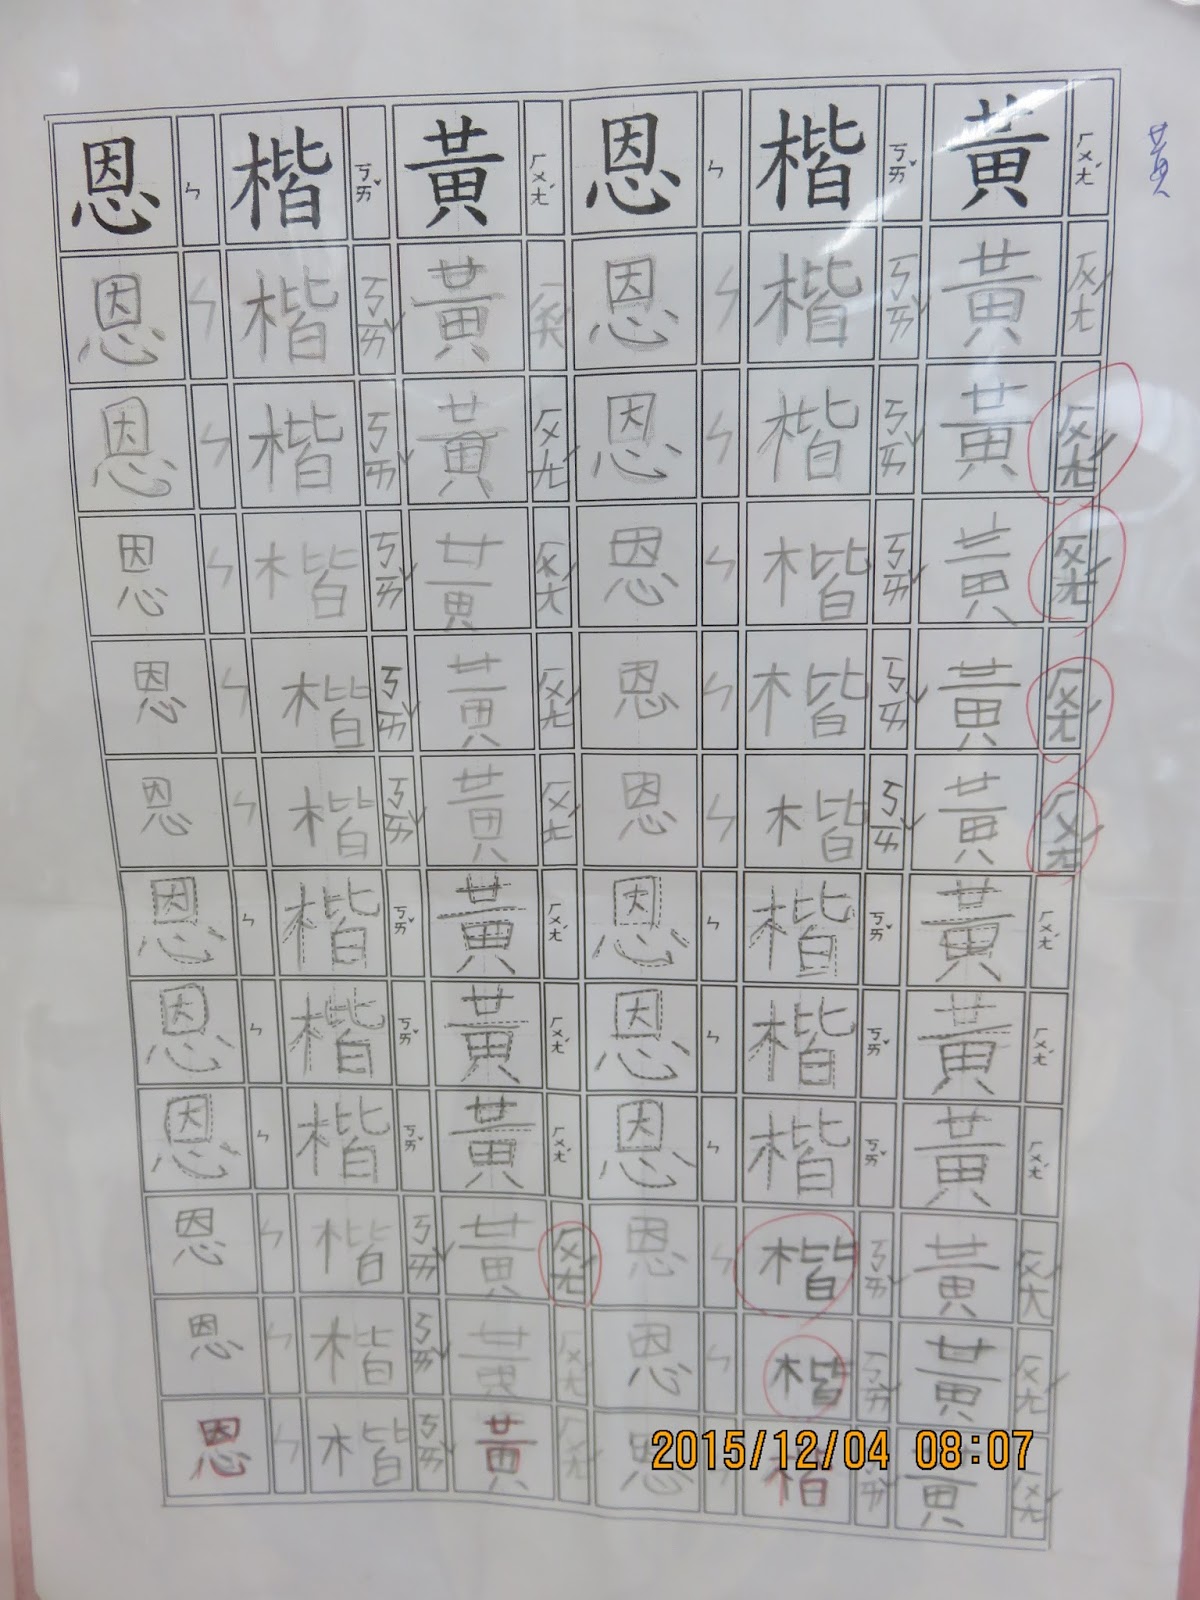 黃
黃 ㄏㄨㄤˊ 楷 ㄎㄞˇ 恩 ㄣ 黃 ㄏㄨㄤˊ 楷 ㄎㄞˇ 恩 ㄣ
黃 ㄏㄨㄤˊ 楷 ㄎㄞˇ 恩 ㄣ 黃 ㄏㄨㄤˊ 楷 ㄎㄞˇ 恩 ㄣ
黃 ㄏㄨㄤˊ 楷 ㄎㄞˇ 恩 ㄣ 黃 ㄏㄨㄤˊ 楷 ㄎㄞˇ 恩 ㄣ
黃 ㄏㄨㄤˊ 楷 ㄎㄞˇ 恩 ㄣ 黃 ㄏㄨㄤˊ 楷 ㄎㄞˇ 恩 ㄣ
黃 ㄏㄨㄤˊ 楷 ㄎㄞˇ 恩 ㄣ 黃 ㄏㄨㄤˊ 楷 ㄎㄞˇ 恩 ㄣ
黃 ㄏㄨㄤˊ 楷 ㄎㄞˇ 恩 ㄣ 黃 ㄏㄨㄤˊ 楷 ㄎㄞˇ 恩 ㄣ
黃 ㄏㄨㄤˊ 楷 ㄎㄞˇ 恩 ㄣ 黃 ㄏㄨㄤˊ 楷 ㄎㄞˇ 恩 ㄣ
黃 ㄏㄨㄤˊ 楷 ㄎㄞˇ 恩 ㄣ 黃 ㄏㄨㄤˊ 楷 ㄎㄞˇ 恩 ㄣ
黃 ㄏㄨㄤˊ 楷 ㄎㄞˇ 恩 ㄣ 黃 ㄏㄨㄤˊ 楷 ㄎㄞˇ 恩 ㄣ
黃 ㄏㄨㄤˊ 楷 ㄎㄞˇ 恩 ㄣ 黃 ㄏㄨㄤˊ 楷 ㄎㄞˇ 恩 ㄣ
黃 ㄏㄨㄤˊ 楷 ㄎㄞˇ 恩 ㄣ 黃 ㄏㄨㄤˊ 楷 ㄎㄞˇ 恩 ㄣ
黃 ㄏㄨㄤˊ 楷 ㄎㄞˇ 恩 ㄣ 黃 ㄏㄨㄤˊ 楷 ㄎㄞˇ 恩 ㄣ
2015/12/04 08:07